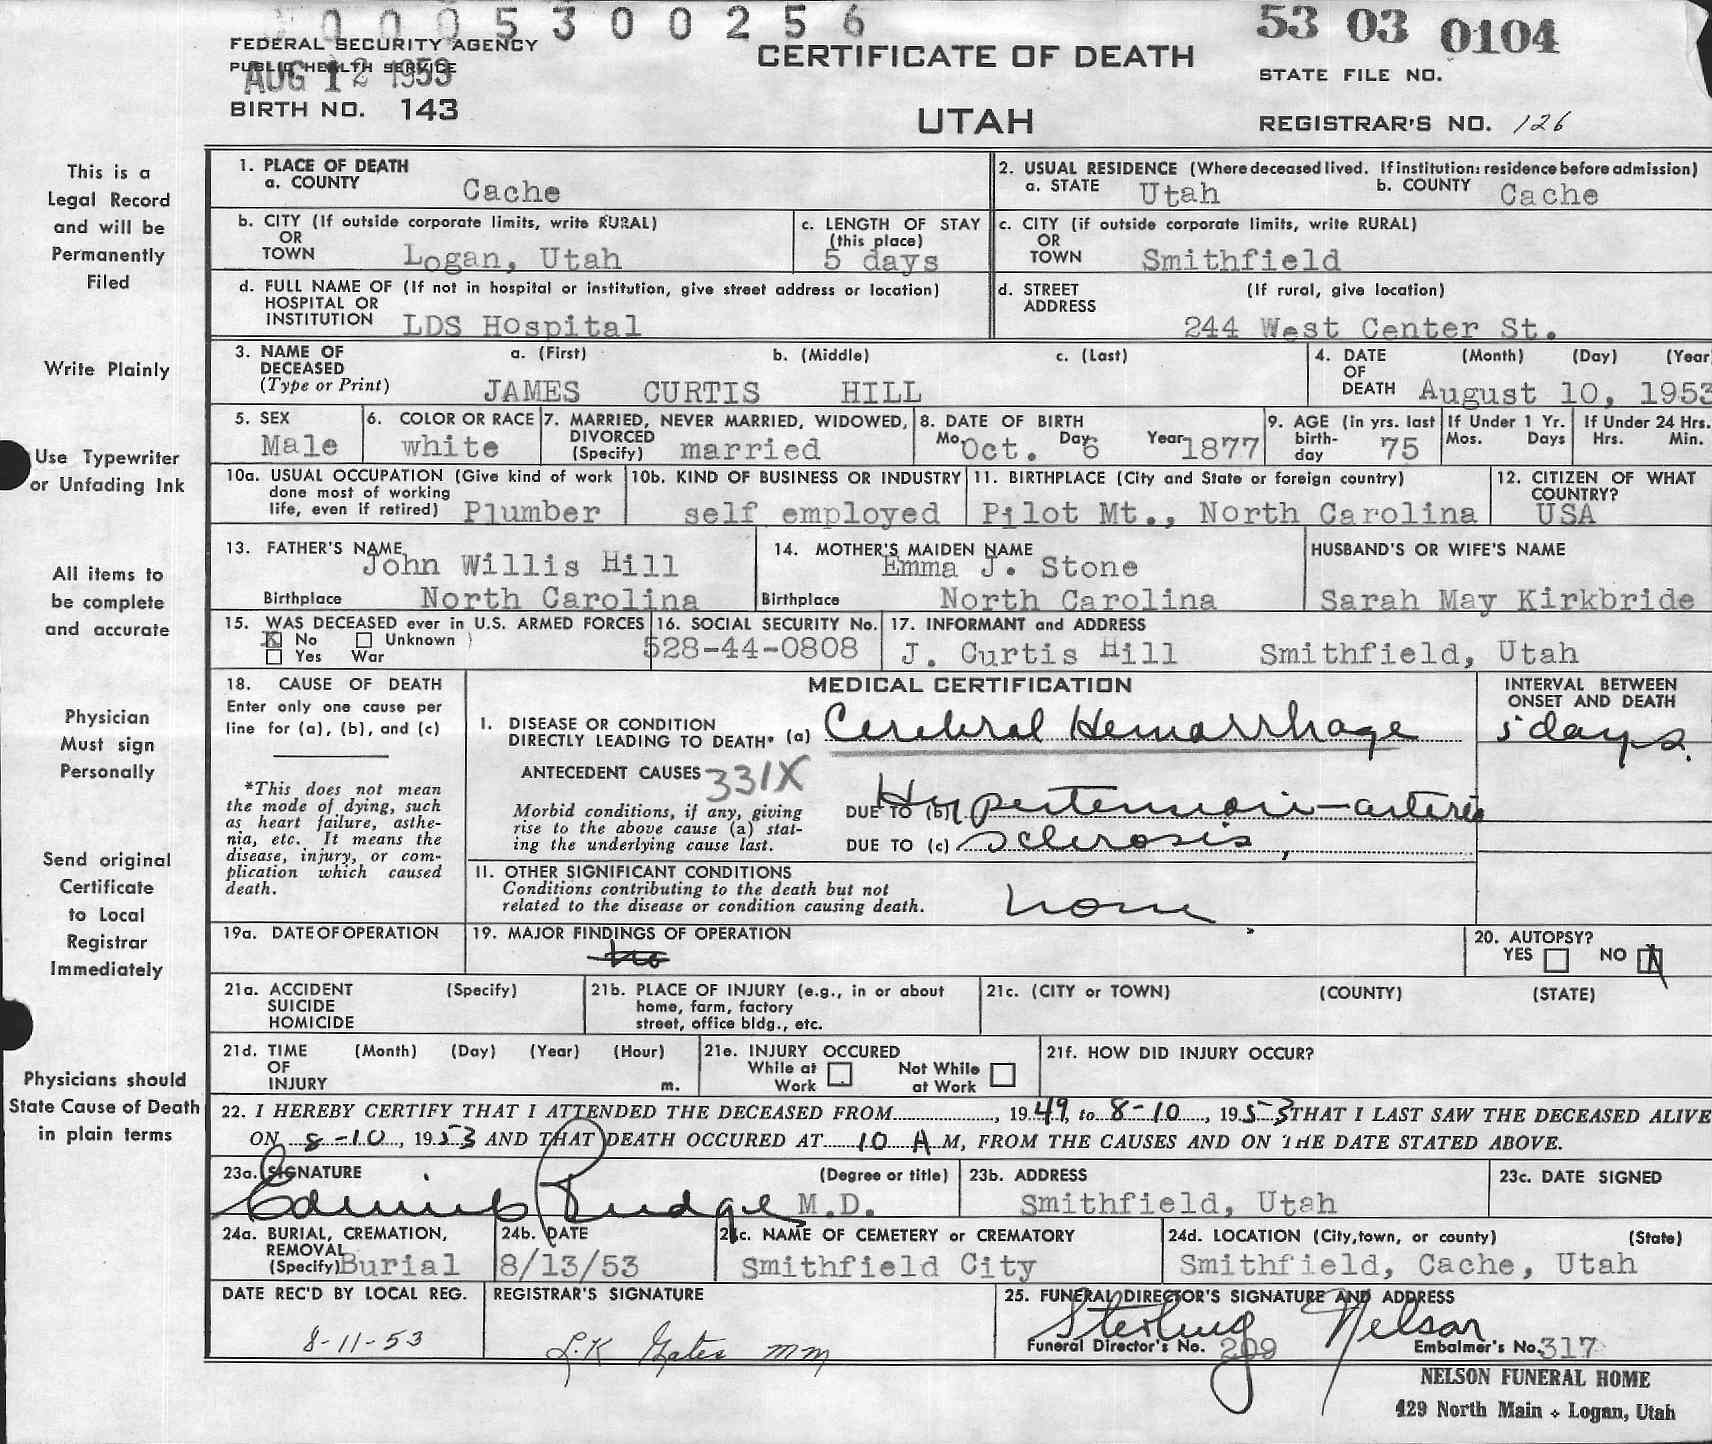 0 0 0 5 3 0 0 2 5 6
53 03 0104
FEDERAL SECURITY AGENCY
PUBLIC HEALTH SERVICE
AUG 12 1953
BIRTH NO. 143
CERTIFICATE OF DEATH
UTAH
STATE FILE NO.
REGISTRAR'S NO. 126
This is a
Legal Record
and will be
Permanently
Filed
Write Plainly
Use Typewriter
or Unfading Ink
All items to
be complete
and accurate
Physician
Must sign
Personally
Send original
Certificate
to Local
Registrar
Immediately
Physicians should
State Cause of Death
in plain terms
1. PLACE OF DEATH
a. COUNTY Cache
2. USUAL RESIDENCE (Where deceased lived. If institution: residence before admission)
a. STATE Utah b. COUNTY Cache
b. CITY (If outside corporate limits, write RURAL)
OR
TOWN Logan, Utah
c. LENGTH OF STAY
(this place)
5 days
c. CITY (if outside corporate limits, write RURAL)
OR
TOWN Smithfield
d. FULL NAME OF (If not in hospital or institution, give street address or location)
HOSPITAL OR
INSTITUTION LDS Hospital
d. STREET (If rural, give location)
ADDRESS
244 West Center St.
3. NAME OF a. (First) b. (Middle) c. (Last)
DECEASED
(Type or Print) JAMES CURTIS HILL
4. DATE (Month) (Day) (Year
OF
DEATH August 10, 1953
5. SEX
Male
6. COLOR OR RACE
white
7. MARRIED, NEVER MARRIED, WIDOWED,
DIVORCED
(Specify) married
8. DATE OF BIRTH
Mo. Oct. Day 6 Year 1877
9. AGE (in yrs. last
birth-
day 75
If Under 1 Yr.
Mos. Days
If Under 24 Hrs.
Hrs. Min.
10a. USUAL OCCUPATION (Give kind of work
done most of working
life, even if retired) Plumber
10b. KIND OF BUSINESS OR INDUSTRY
self employed
11. BIRTHPLACE (City and State or foreign country)
Pilot Mt., North Carolina
12. CITIZEN OF WHAT
COUNTRY?
USA
13. FATHER'S NAME
John Willis Hill
Birthplace North Carolina
14. MOTHER'S MAIDEN NAME
Emma J. Stone
Birthplace North Carolina
HUSBAND'S OR WIFE'S NAME
Sarah May Kirkbride
15. WAS DECEASED ever in U.S. ARMED FORCES
X No Unknown
Yes War
16. SOCIAL SECURITY No.
528-44-0808
17. INFORMANT and ADDRESS
J. Curtis Hill Smithfield, Utah
18. CAUSE OF DEATH
Enter only one cause per
line for (a), (b), and (c)
*This does not mean
the mode of dying, such
as heart failure, asthe-
nia, etc. It means the
disease, injury, or com-
plication which caused
death.
MEDICAL CERTIFICATION
INTERVAL BETWEEN
ONSET AND DEATH
I. DISEASE OR CONDITION
DIRECTLY LEADING TO DEATH* (a) Cerebral Hemorrhage 5 days.
ANTECEDENT CAUSES 331X
Morbid conditions, if any, giving
rise to the above cause (a) stat-
ing the underlying cause last.
DUE TO (b) Hypertension-arterio
DUE TO (c) sclerosis,
II. OTHER SIGNIFICANT CONDITIONS
Conditions contributing to the death but not
related to the disease or condition causing death.
none
19a. DATE OF OPERATION
19. MAJOR FINDINGS OF OPERATION
no
20. AUTOPSY?
YES NO X
21a. ACCIDENT (Specify)
SUICIDE
HOMICIDE
21b. PLACE OF INJURY (e.g., in or about
home, farm, factory
street, office bldg., etc.
21c. (CITY or TOWN) (COUNTY) (STATE)
21d. TIME (Month) (Day) (Year) (Hour)
OF
INJURY m.
21e. INJURY OCCURED
While at Work Not While at Work
21f. HOW DID INJURY OCCUR?
22. I HEREBY CERTIFY THAT I ATTENDED THE DECEASED FROM , 1949, to 8-10, 1953 THAT I LAST SAW THE DECEASED ALIVE
ON 8-10, 1953 AND THAT DEATH OCCURED AT 10 A M, FROM THE CAUSES AND ON THE DATE STATED ABOVE.
23a. SIGNATURE (Degree or title)
Edwin Budge M.D.
23b. ADDRESS
Smithfield, Utah
23c. DATE SIGNED
24a. BURIAL, CREMATION,
REMOVAL
(Specify) Burial
24b. DATE
8/13/53
24c. NAME OF CEMETERY or CREMATORY
Smithfield City
24d. LOCATION (City, town, or county) (State)
Smithfield, Cache, Utah
DATE REC'D BY LOCAL REG.
8-11-53
REGISTRAR'S SIGNATURE
L.K Gates mm
25. FUNERAL DIRECTOR'S SIGNATURE AND ADDRESS
Sterling Nelson
Funeral Director's No. 209 Embalmer's No. 317
NELSON FUNERAL HOME
429 North Main Logan, Utah